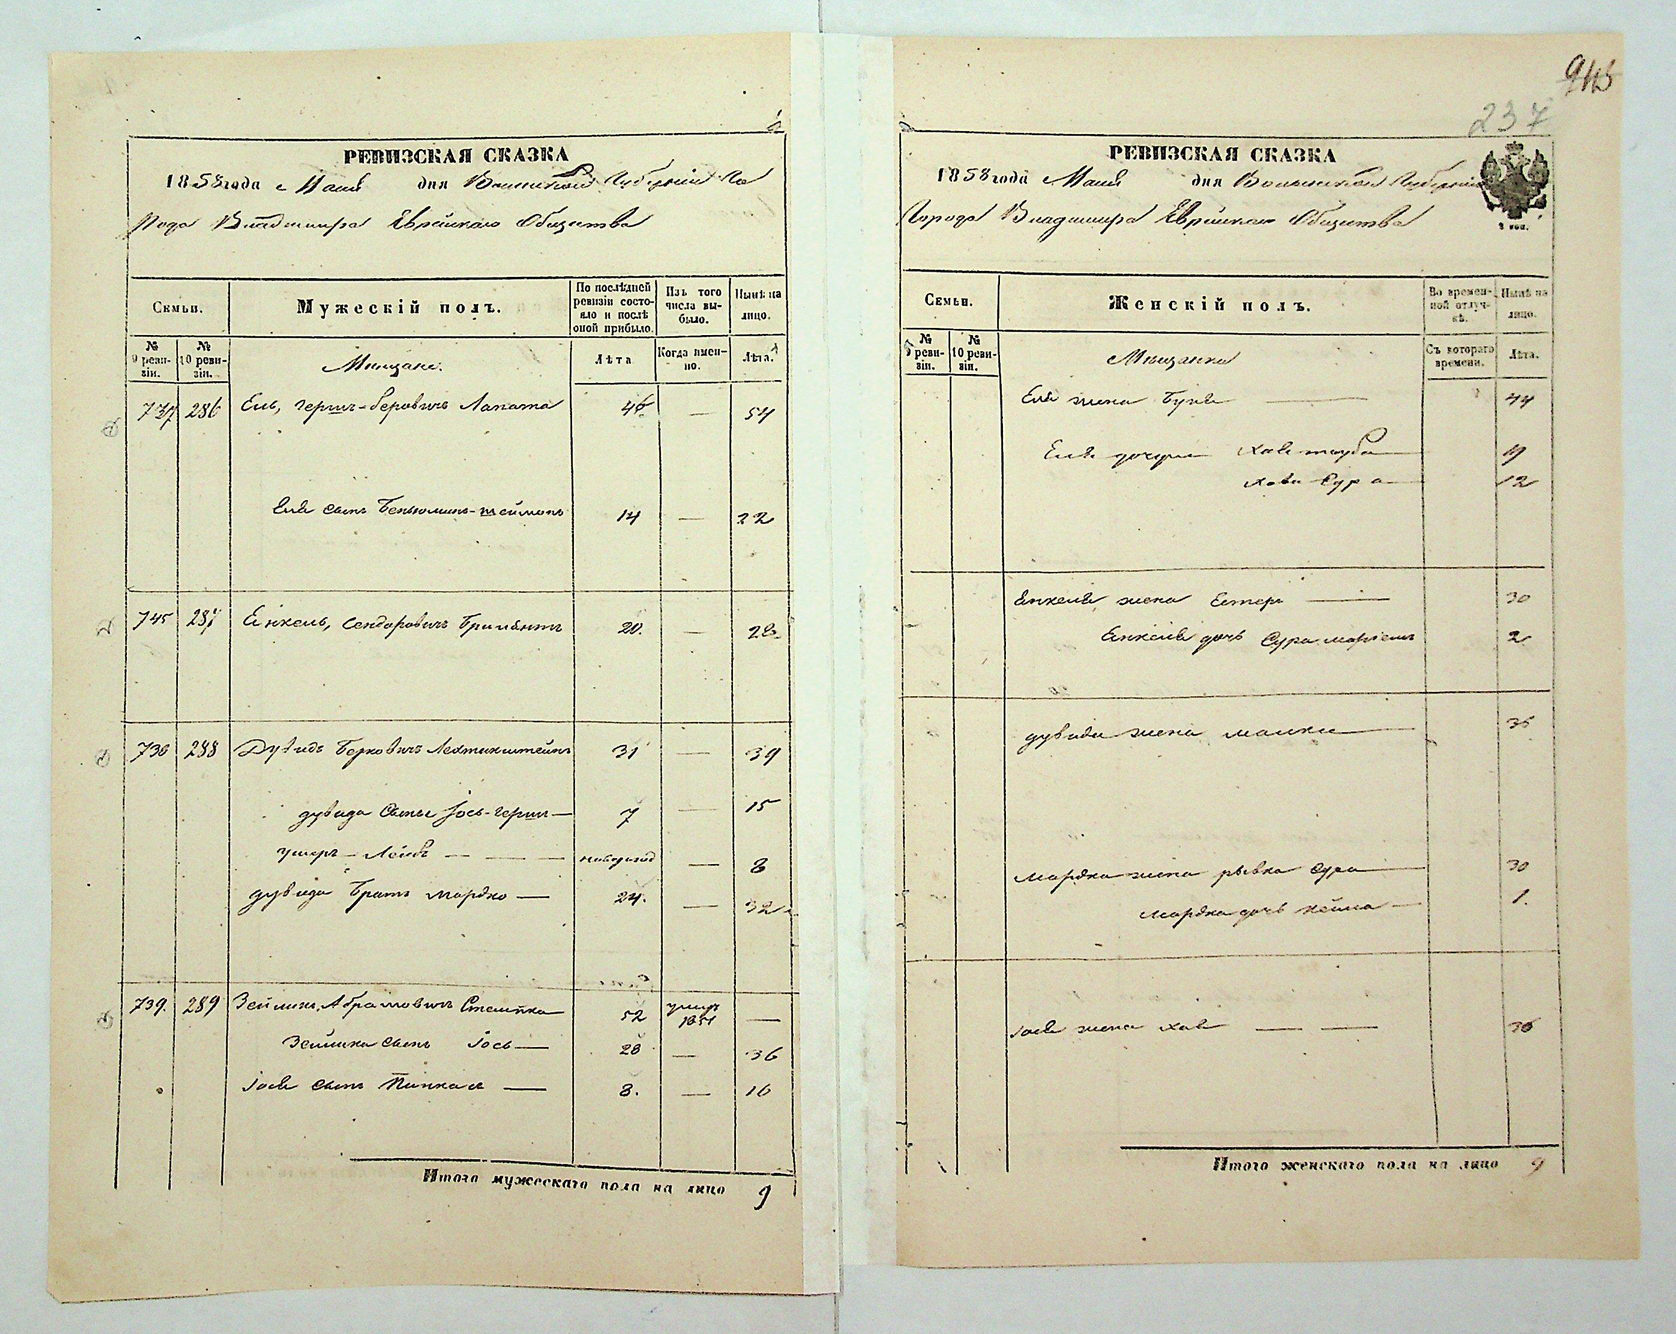 945
237
РЕВИЗСКАЯ СКАЗКА
1858 года Мая дня Волынской Губерніи Го
рода Владимира Еврейскаго Общества
Семьи.
Мужескій полъ.
По послѣдней ревизіи состояло и послѣ оной прибыло.
Изъ того числа выбыло.
Нынѣ на лицо.
№ 9 ревизіи.
№ 10 ревизіи.
Мещане.
Лѣта
Когда именно.
Лѣта.
737 286 Ель, Герш-Беровичъ Лапата 46 — 54
Еля сынъ Беньюминъ-Шеймонъ 14 — 22
745 287 Енкель, Сендоровичъ Брилянтъ 20. — 28.
738 288 Дувидъ Берковичъ Лехтикштейнъ 31 — 39
дувида Сыны Іось-герш — 7 — 15
Ушеръ — Лейбъ — — — новорожд — 8
дувида братъ Мордко — 24. — 32
739. 289 Зейликъ, Абрамовичъ Стелика 52 умеръ 1851 —
Зейлика сынъ Іось — 28 — 36
Іося сынъ Пинкас — 8. — 16
Итого мужескаго пола на лицо 9
РЕВИЗСКАЯ СКАЗКА
1858 года Мая дня Волынской Губерніи
Города Владимира Еврейскаго Общества
2 коп.
Семьи.
Женскій полъ.
Во временной отлучкѣ.
Нынѣ на лицо.
№ 9 ревизіи.
№ 10 ревизіи.
Мещанки
Съ котораго времени.
Лѣта.
Еля жена Буня — 44
Еля дочери Хая тауба — 19
Хава Сура — 12
Енкеля жена Естер — 30
Енкеля дочь Сура маріемъ 2
дувида жена малка — 35
мордка жена рывка Сура — 30
мордка дочь нейма — 1.
Іося жена Хая — — 36
Итого женскаго пола на лицо 9